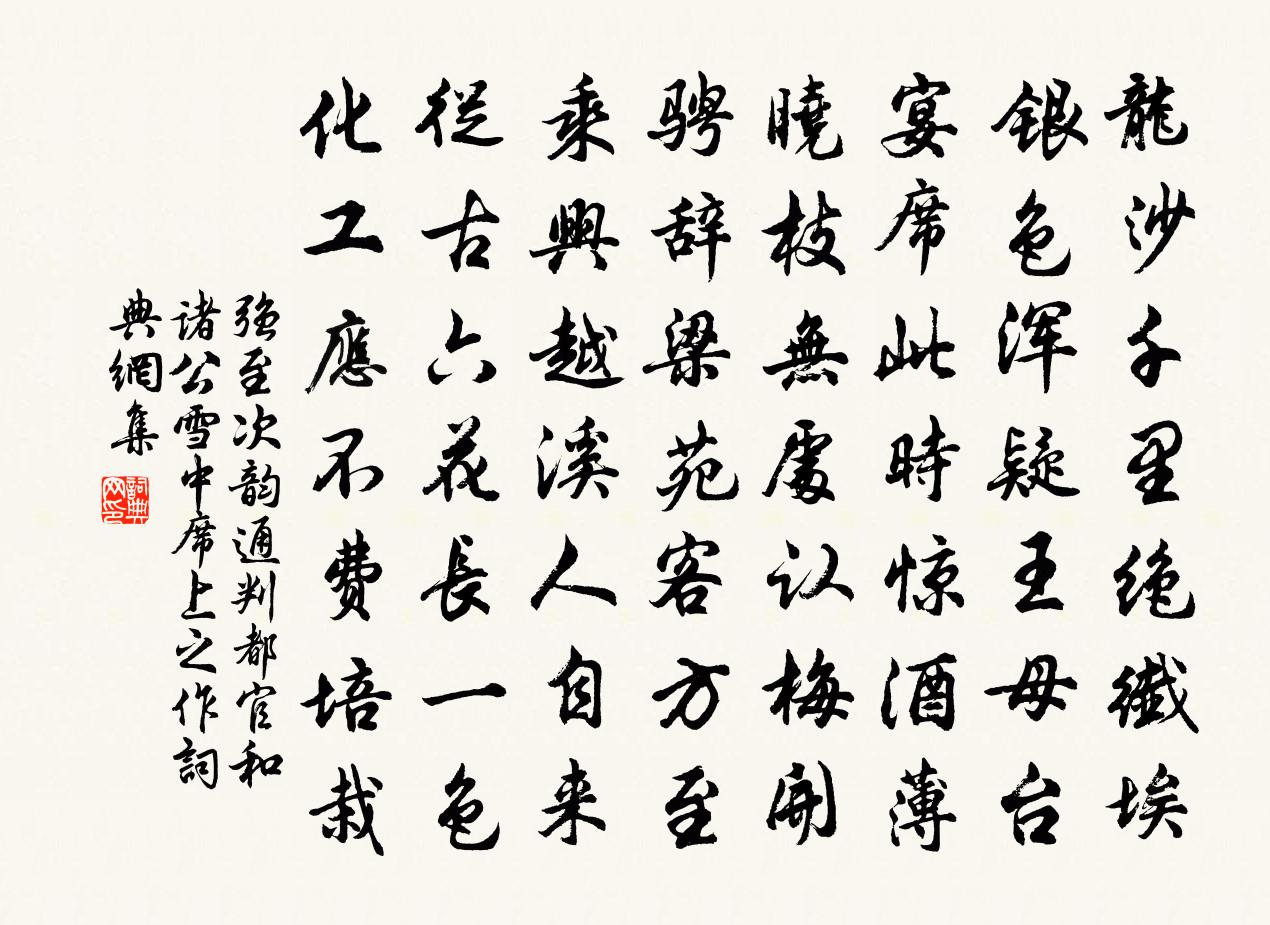 龍沙千里绝纖埃
银色浑疑王母台
宴席此時惊酒薄
曉枝無處认梅開
骋辞梁苑客方至
乘興越溪人自来
從古六花長一色
化工應不費培栽
強至次韵通判都官和
诸公雪中席上之作詞
典網集
詞典網印